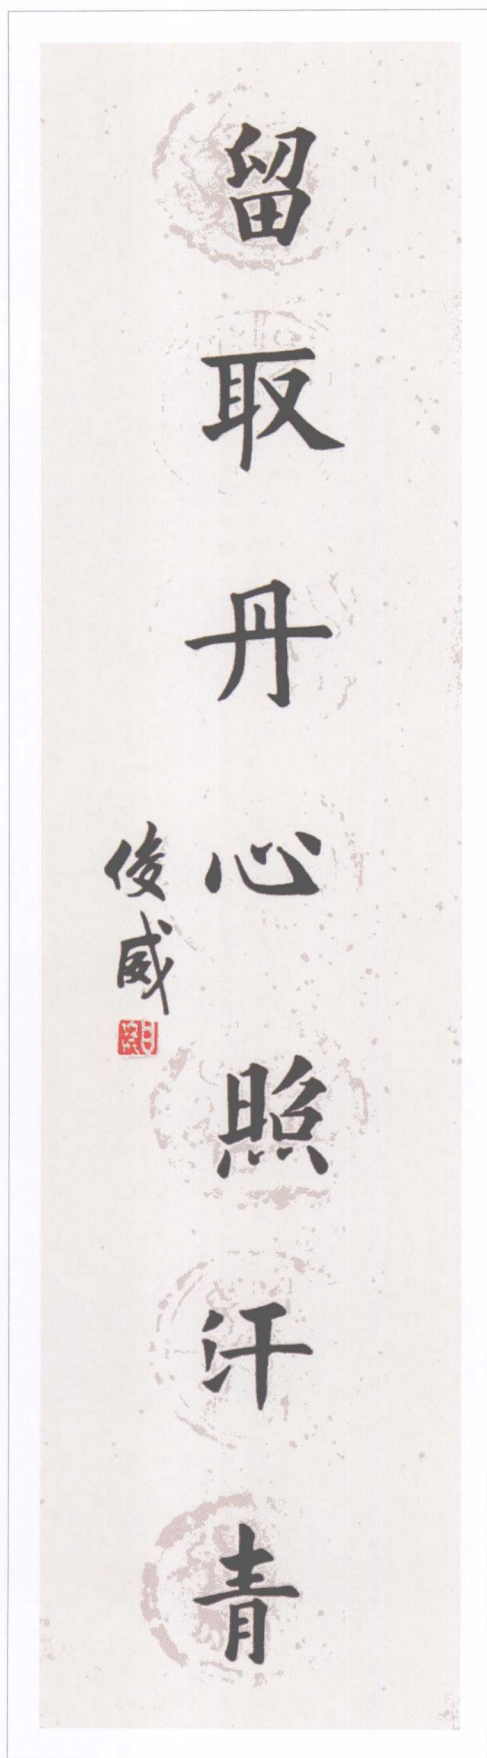 留取丹心照汗青
俊威